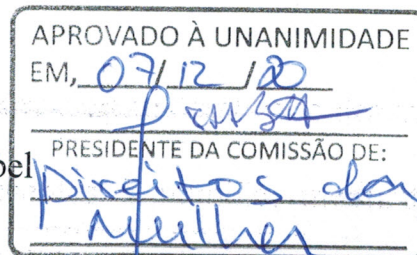 APROVADO À UNANIMIDADE
EM, 07/12/20
PRESIDENTE DA COMISSÃO DE:
Direitos da
Mulher